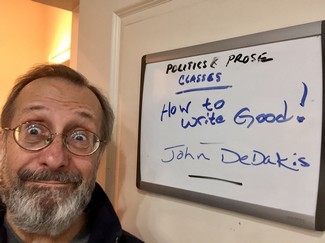 POLITICS & PROSE
CLASSES
How to
Write Good!
John DeDakis